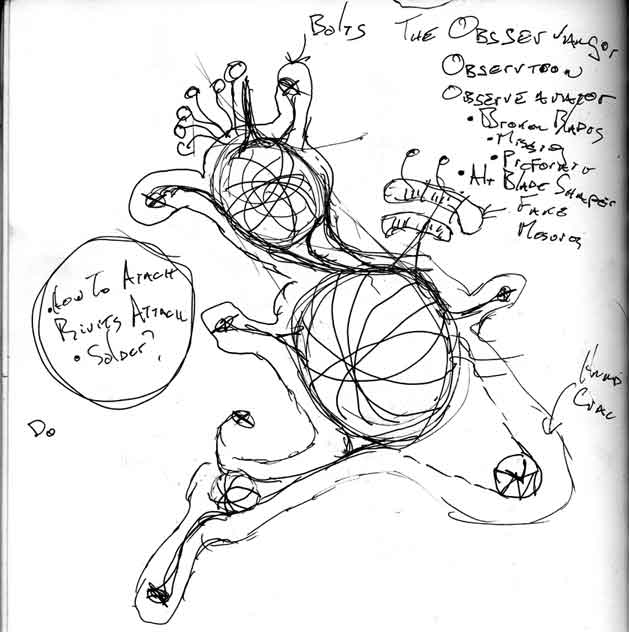 Bolts
The Obsservangor
Observtoon
Observe avagor
• Broken Blades
• Missing
• Preforate
• Alt Blade Shapes
Fake
• How To Atach
Rivits Attach
• Solder?
Do